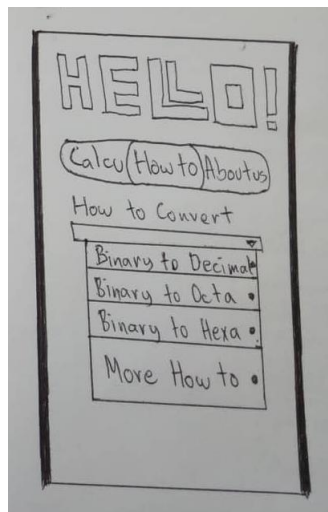 HELLO!
Calcu How to About us
How to Convert
Binary to Decimal
Binary to Octa
Binary to Hexa
More How to